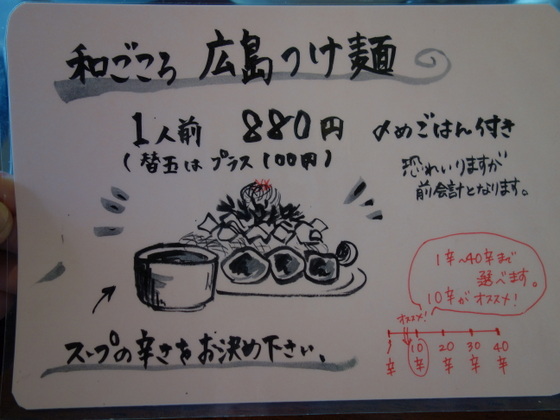 和ごころ 広島つけ麺
1人前 880円 〆めごはん付き
(替玉はプラス100円)
恐れいりますが
前会計となります。
1辛〜40辛まで
選べます。
10辛がオススメ!
オススメ!
1 10 20 30 40
辛 辛 辛 辛 辛
スープの辛さをお決め下さい、